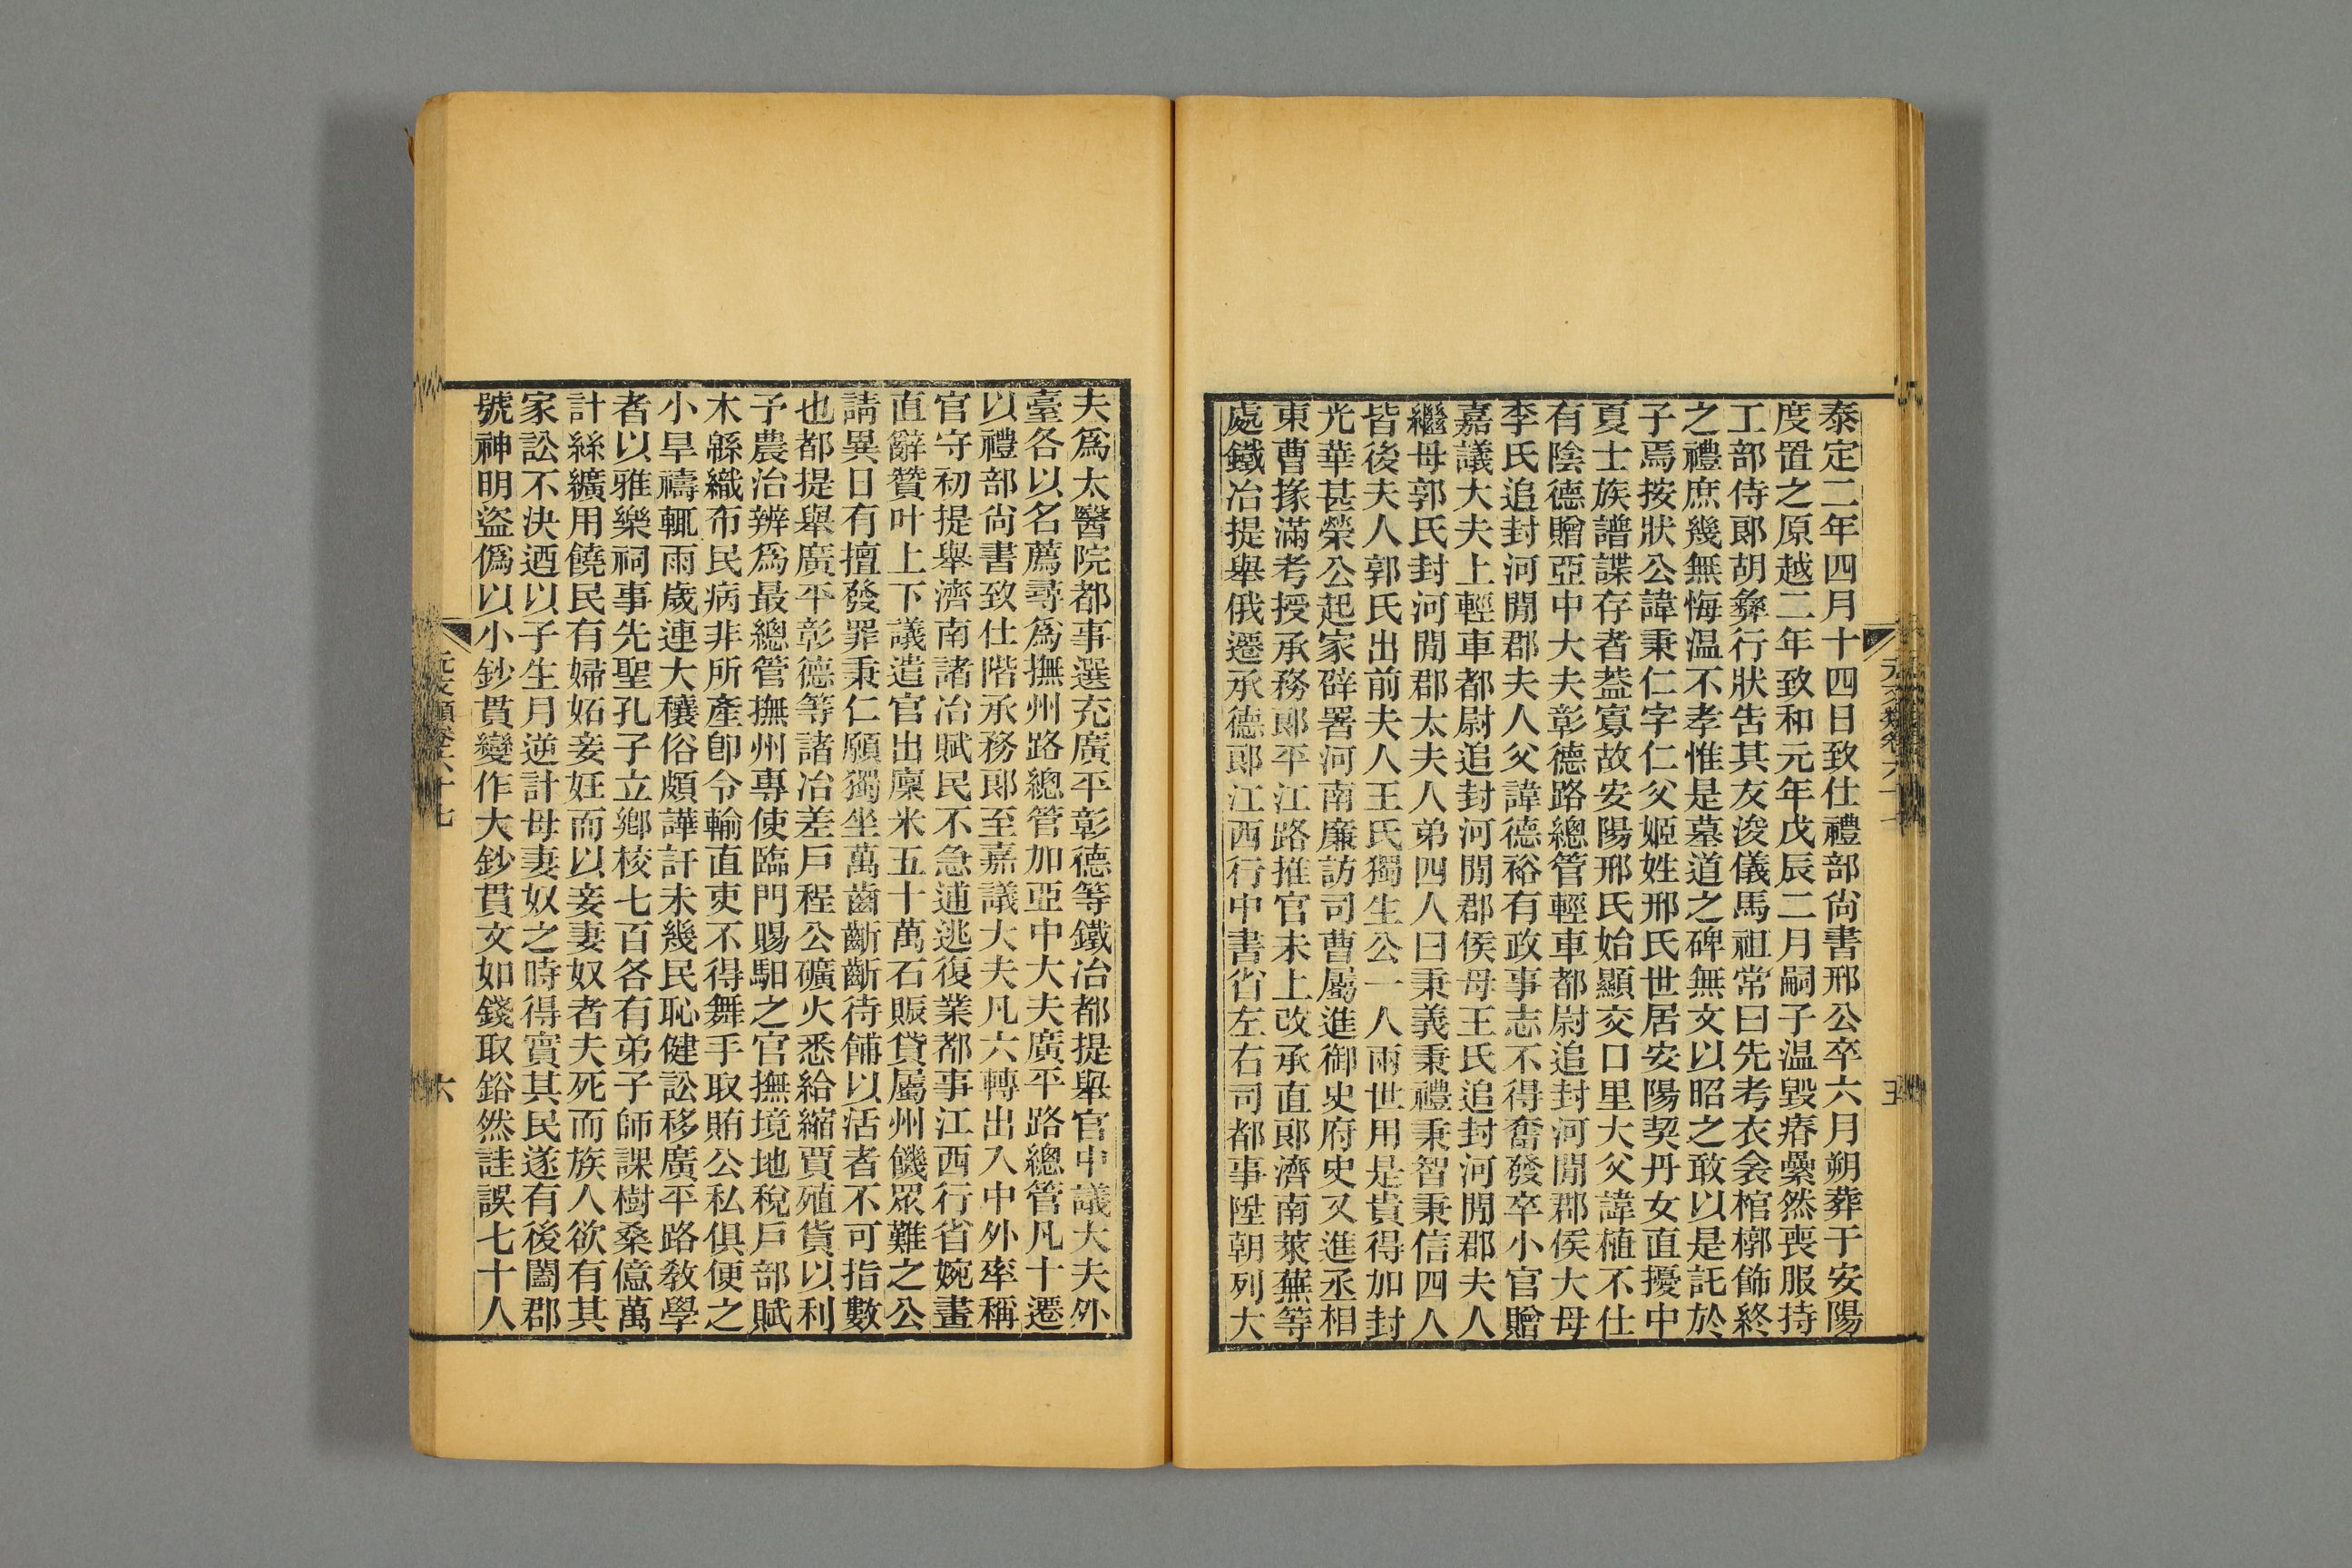 泰定二年四月十四日致仕禮部尚書邢公卒六月朔葬于安陽
度置之原越二年致和元年戊辰二月嗣子温毀瘠纍然喪服持
工部侍郎胡彝行狀告其友浚儀馬祖常曰先考衣衾棺槨飾終
之禮庶幾無悔温不孝惟是墓道之碑無文以昭之敢以是託於
子焉按狀公諱秉仁字仁父姬姓邢氏世居安陽契丹女直擾中
夏士族譜諜存者葢寡故安陽邢氏始顯交口里大父諱植不仕
有陰德贈亞中大夫彰德路總管輕車都尉追封河閒郡侯大母
李氏追封河閒郡夫人父諱德裕有政事志不得奮發卒小官贈
嘉議大夫上輕車都尉追封河閒郡侯母王氏追封河閒郡夫人
繼母郭氏封河閒郡太夫人弟四人曰秉義秉禮秉智秉信四人
皆後夫人郭氏出前夫人王氏獨生公一人兩世用是貴得加封
光華甚榮公起家辟署河南廉訪司曹屬進御史府史又進丞相
東曹掾滿考授承務郎平江路推官未上改承直郎濟南萊蕪等
處鐵冶提舉俄遷承德郎江西行中書省左右司都事陞朝列大
五
夫爲太醫院都事選充廣平彰德等鐵冶都提舉官中議大夫外
臺各以名薦尋爲撫州路總管加亞中大夫廣平路總管凡十遷
以禮部尚書致仕階承務郎至嘉議大夫凡六轉出入中外率稱
官守初提舉濟南諸冶賦民不急逋逃復業都事江西行省婉畫
直辭贊叶上下議遣官出廩米五十萬石賑貸屬州饑眾難之公
請異日有擅發罪秉仁願獨坐萬齒齗齗待餔以活者不可指數
也都提舉廣平彰德等諸冶差戸程公礦火悉給縮賈殖貨以利
予農治辨爲最總管撫州專使臨門賜馹之官撫境地稅戸部賦
木緜織布民病非所產卽令輸直吏不得舞手取賄公私俱便之
小旱禱輒雨歲連大穰俗頗譁訐未幾民恥健訟移廣平路敎學
者以雅樂祠事先聖孔子立鄉校七百各有弟子師課樹桑億萬
計絲纊用饒民有婦妬妾妊而以妾妻奴者夫死而族人欲有其
家訟不決迺以子生月逆計母妻奴之時得實其民遂有後闔郡
號神明盜僞以小鈔貫變作大鈔貫文如錢取鋊然詿誤七十人
六